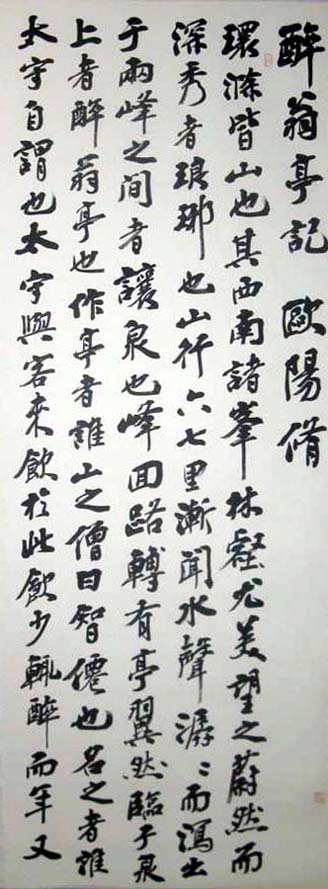 醉翁亭記 歐陽脩
環滁皆山也其西南諸峯林壑尤美望之蔚然而
深秀者琅琊也山行六七里漸聞水聲潺〻而瀉出
于兩峰之间者讓泉也峰回路轉有亭翼然臨于泉
上者醉翁亭也作亭者誰山之僧曰智僊也名之者誰
太守自謂也太守與客來飲於此飲少輒醉而年又